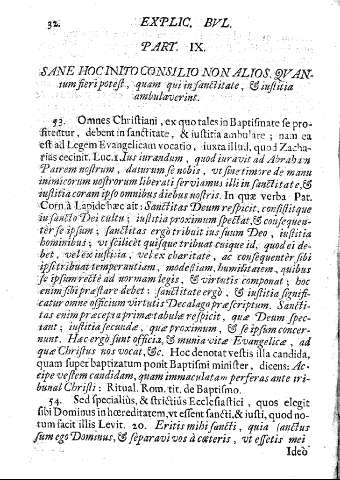 32. EXPLIC. BVL.
PART. IX.
SANE HOC INITO CONSILIO NON ALIOS. QVAN-
tum fieri potest, quam qui in sanctitate, & iustitia
ambulaverint.
53. Omnes Christiani, ex quo tales in Baptismate se pro-
fitentur, debent in sanctitate, & iustitia ambulare; nam ea
est ad Legem Evangelicam vocatio, iuxta illud, quod Zacha-
rias cecinit. Luc. 1. Ius iurandum, quod iuravit ad Abraham
Patrem nostrum, daturum se nobis, vt sine timore de manu
inimicorum nostrorum liberati serviamus illi in sanctitate, &
iustitia coram ipso omnibus diebus nostris. In quæ verba Pat.
Corn. à Lapide hæc ait: Sanctitas Deum respicit, consistitque
in sancto Dei cultu; iustitia proximum spectat, & consequen-
ter se ipsum; sanctitas ergò tribuit ius suum Deo, iustitia
hominibus; vt scilicèt quisque tribuat cuique id, quod ei de-
bet, vel ex iustitia, vel ex charitate, ac consequentèr sibi
ipsi tribuat temperantiam, modestiam, humilitatem, quibus
se ipsum rectè ad normam legis, & virtutis componat; hoc
enim sibi præstare debet: sanctitate ergò, & iustitia signifi-
catur omne officium virtutis Decalago præscriptum. Sancti-
tas enim præcepta primæ tabulæ respicit, quæ Deum spec-
tant; iustitia secundæ, quæ proximum, & se ipsum concer-
nunt. Hac ergò sunt officia, & munia vitæ Evangelicæ, ad
quæ Christus nos vocat, &c. Hoc denotat vestis illa candida,
quam super baptizatum ponit Baptismi minister, dicens: Ac-
cipe vestem candidam, quam immaculatam perferas ante tri-
bunal Christi: Ritual. Rom. tit. de Baptismo.
54. Sed specialiùs, & strictiùs Ecclesiastici, quos elegit
sibi Dominus in hœreditatem, vt essent sancti, & iusti, quod no-
tum facit illis Levit. 20. Eritis mihi sancti, quia sanctus
sum ego Dominus, & separavi vos à cæteris, vt essetis mei
Ideò